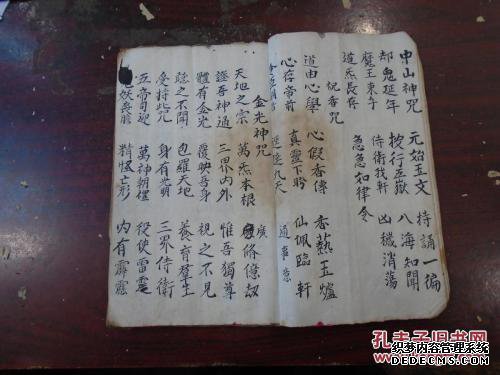 中山神咒 元始玉文 持誦一徧
却鬼延年 按行五嶽 八海知聞
魔王束手 侍衛我軒 凶穢消蕩
道炁長存 急急如律令
祝香咒
道由心學 心假香傳 香爇玉爐
心存帝前 真靈下盻 仙佩臨軒
逕達九天
金光神咒
天地之宗 萬炁本根 修億劫
證吾神通 三界內外 惟吾獨尊
體有金光 覆映吾身 視之不見
聽之不聞 包羅天地 養育羣生
受持此咒 身有光明 三界侍衛
五帝司迎 萬神朝禮 役使雷霆
妖喪膽 精怪亡形 內有霹靂
孔夫子旧书网